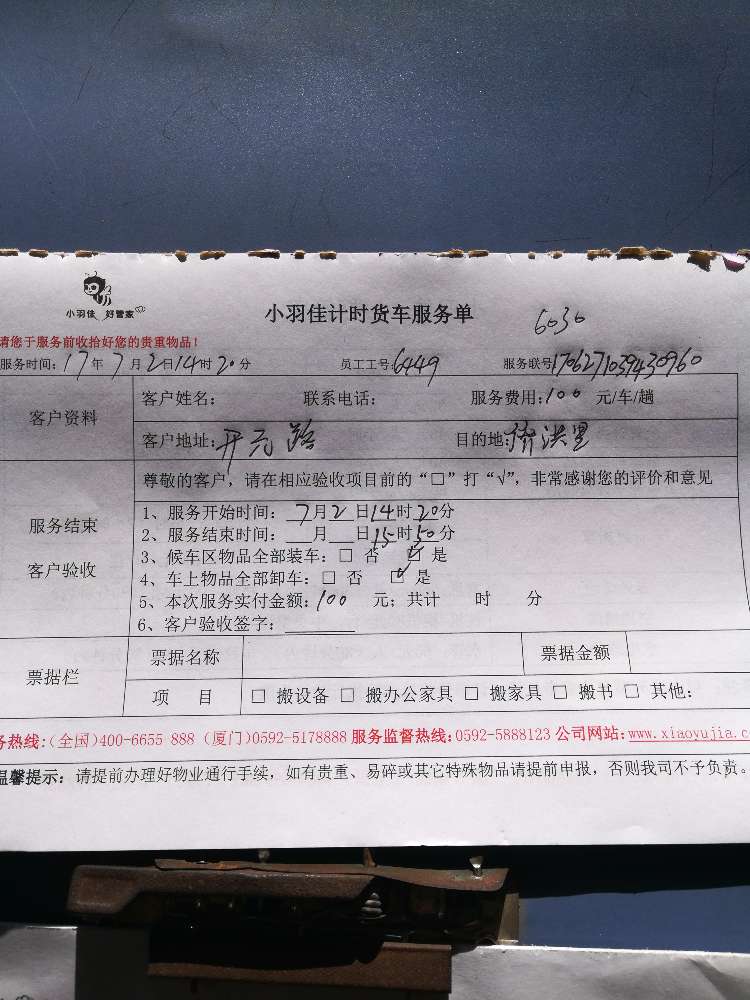 小羽佳 好管家
小羽佳计时货车服务单
6030
请您于服务前收拾好您的贵重物品!
服务时间: 17年7月2日14时20分 员工工号: 6449 服务联号 1706271039430960
客户资料
客户姓名: 联系电话: 服务费用: 100 元/车/趟
客户地址: 开元路 目的地: 洪里
尊敬的客户，请在相应验收项目前的“□”打“√”，非常感谢您的评价和意见
服务结束
客户验收
1、服务开始时间: 7月2日14时20分
2、服务结束时间: 月 日15时50分
3、候车区物品全部装车: □ 否 ☑ 是
4、车上物品全部卸车: □ 否 ☑ 是
5、本次服务实付金额: 100 元; 共计 时 分
6、客户验收签字:
票据栏
票据名称 票据金额
项 目 □ 搬设备 □ 搬办公家具 □ 搬家具 □ 搬书 □ 其他:
务热线:(全国)400-6655 888 (厦门)0592-5178888 服务监督热线:0592-5888123 公司网站:www.xiaoyujia.c
温馨提示: 请提前办理好物业通行手续，如有贵重、易碎或其它特殊物品请提前申报，否则我司不予负责。